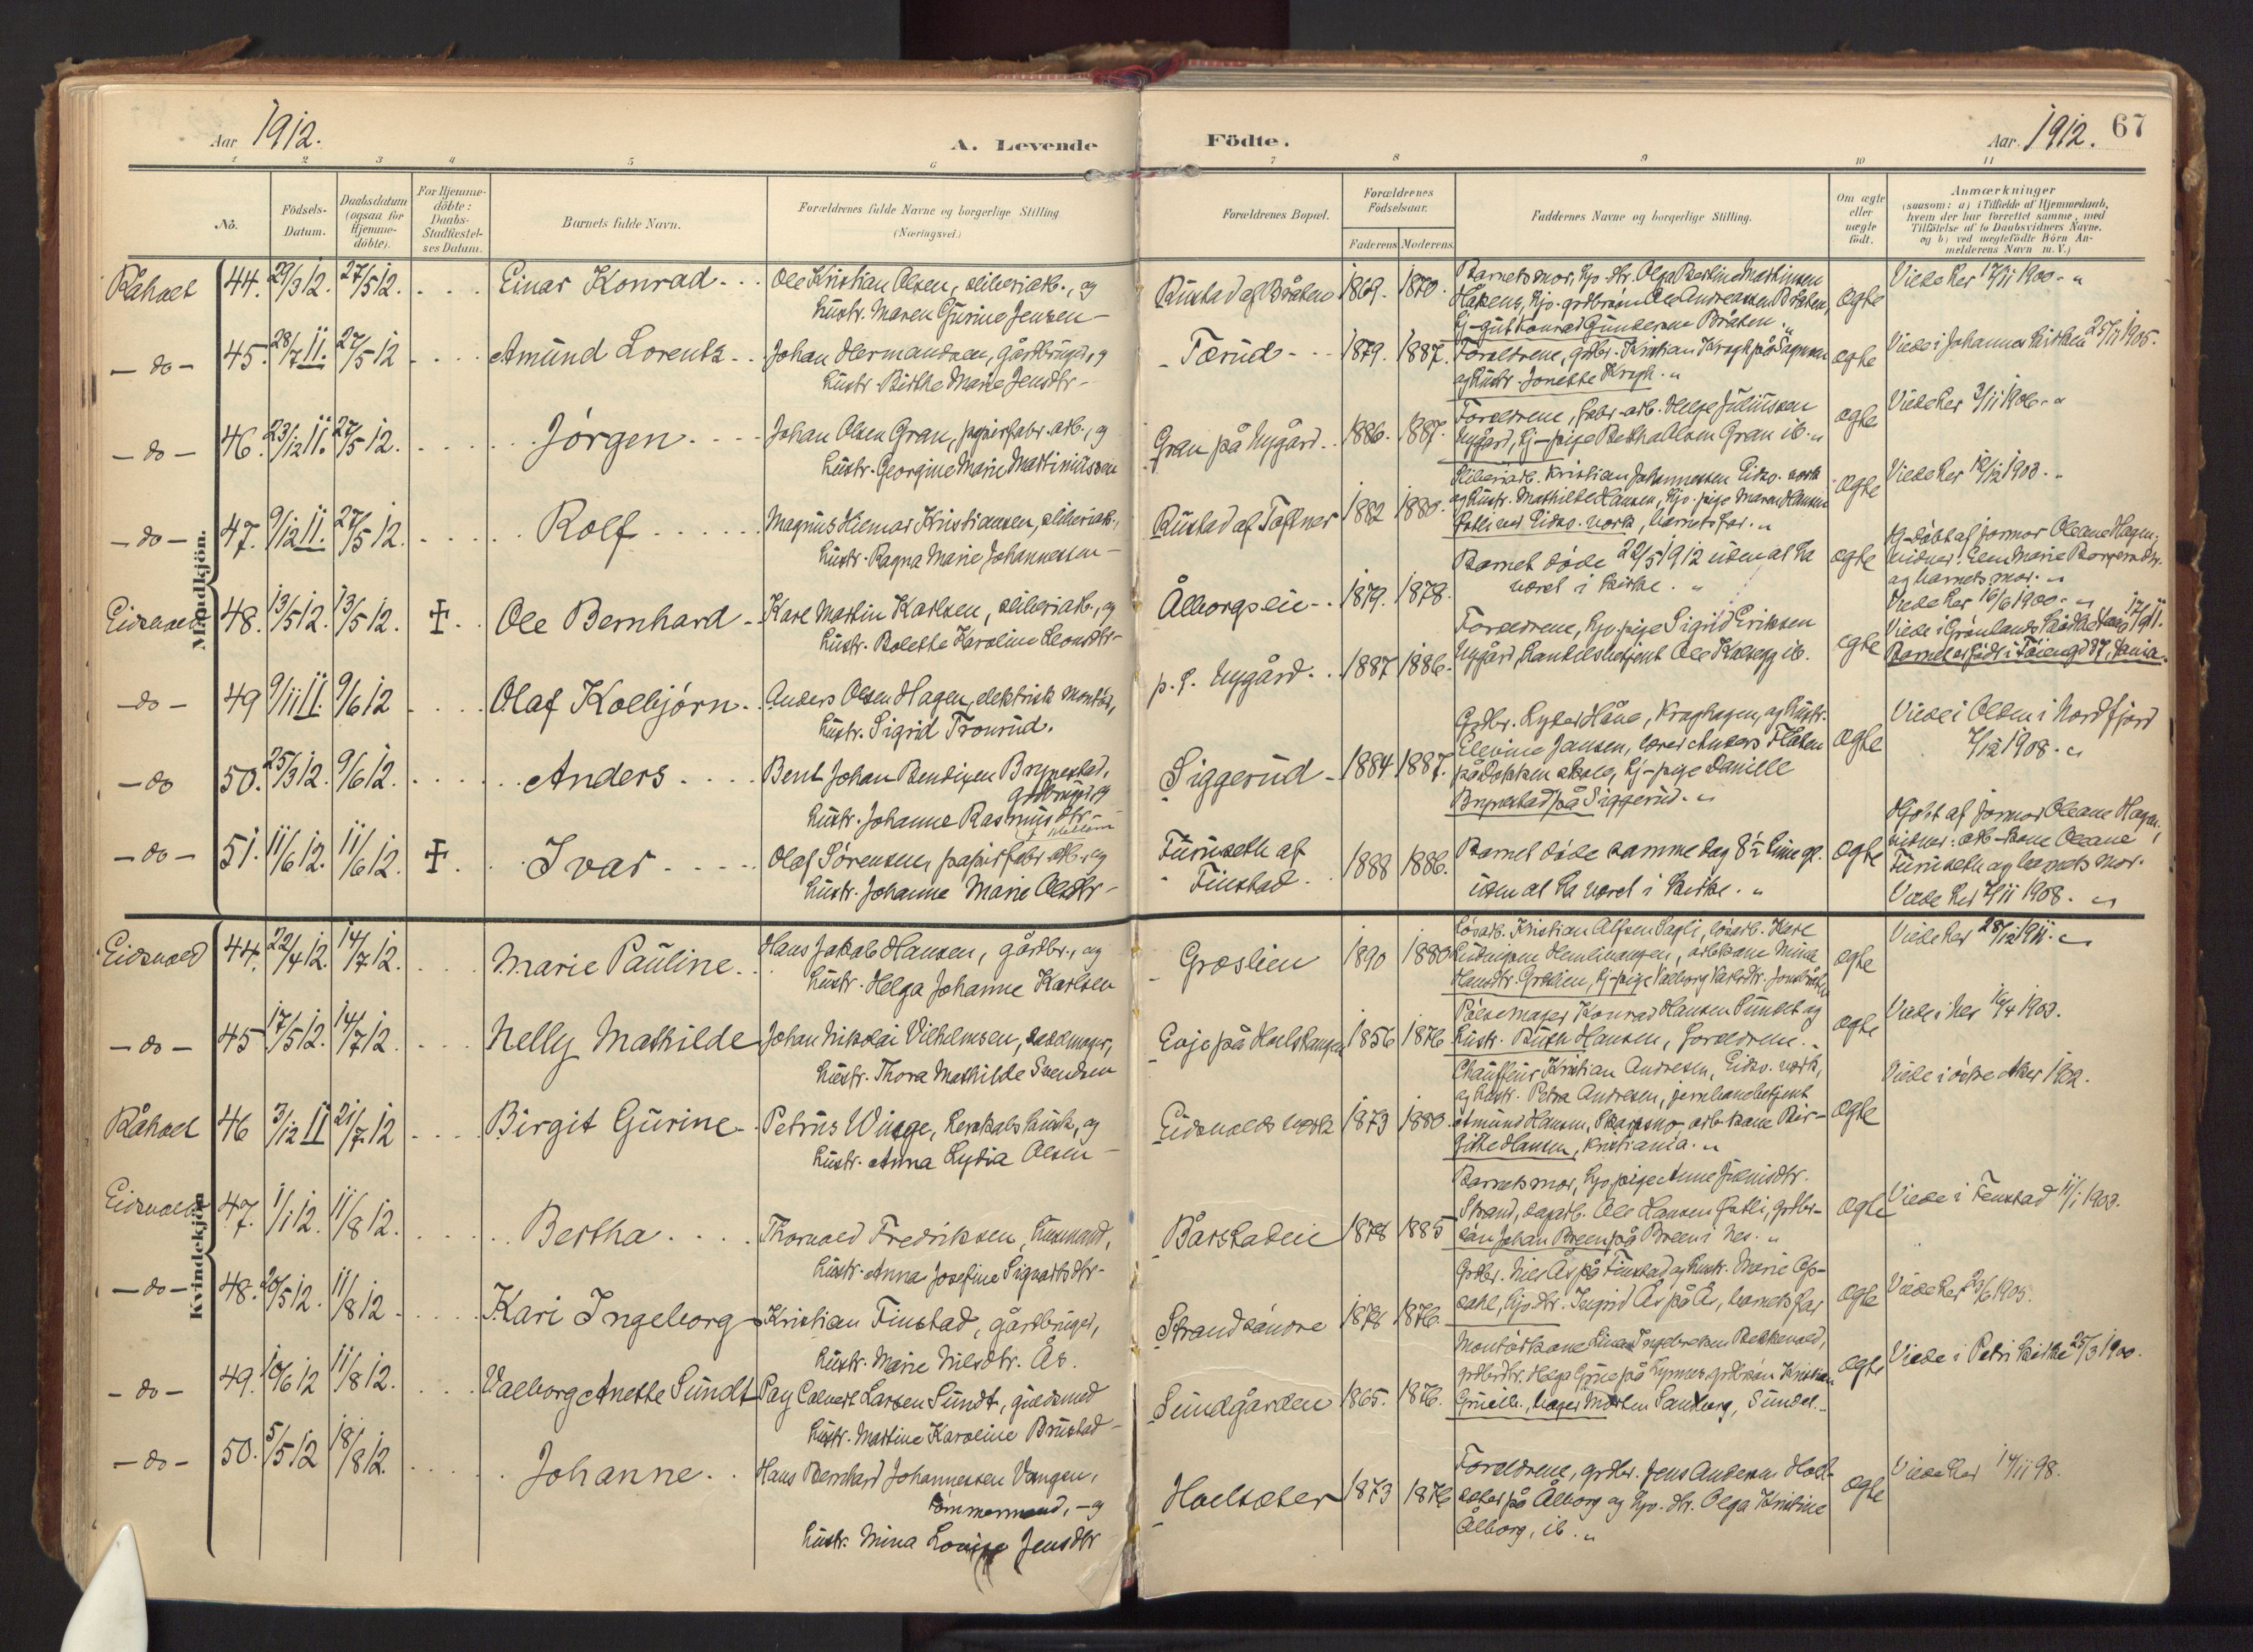 Aar 1912.
A. Levende
Födte.
Aar. 1912.
67
1 2 3 4 5 6 7 8 9 10 11
No.
Födsels-Datum.
Daabsdatum (ogsaa for Hjemme-döbte).
For Hjemme-döbte: Daabs-Stadfæstel-ses Datum.
Barnets fulde Navn.
Forældrenes fulde Navne og borgerlige Stilling.
(Næringsvei.)
Forældrenes Bopæl.
Forældrenes Födselsaar.
Faderens Moderens
Faddernes Navne og borgerlige Stilling.
Om ægte eller uægte födt.
Anmærkninger
(saasom: a) i Tilfælde af Hjemmedaab,
hvem der har forrettet samme, med
Tilföielse af to Daabsvidners Navne,
og b) ved uægtefödte Börn An-
melderens Navn m. V.)
Mandkjön.
Råholt 44. 29/3 12. 27/5 12. Einar Konrad Ole Kristian Olsen, sliberiarb., og
hustr. Maren Gurine Jensen
Rustad af Bråten 1869. 1870.
Barnets mor, Olga Bertine Martinsen
Ole Andreassen Bråten,
Konrad Gundersen Bråten.
ægte Viede her 17/11 1900.
- do - 45. 28/7 11. 27/5 12 Amund Lorentz Johan Hermandsen, gårdbruger, og
hustr. Birthe Marie Jensdtr.
Tærud 1879. 1887.
Foreldrene, grdbr. Kristian Kragh på
og hustr. Jonette Kragh.
ægte Viede i Johannes kirken 25/11 1905.
- do - 46. 23/12 11. 27/5 12. Jörgen Johan Olsen Gran, papirfabr. arb., og
hustr. Georgine Marie Martiniussen
Gran på Nygård 1886. 1887.
Foreldrene, fabr-arb. Helge Juliussen
Nygård, Ej-pige Bertha Olsen Gran ib.
ægte Viede her 3/11 1906.
- do - 47. 9/12 11. 27/5 12. Rolf Magnus Hilmar Kristiansen, sliberiarb.,
hustr. Ragna Marie Johannessen
Rustad af Toftner 1882 1880.
Sliberiarb. Kristian Johannessen Eidsv. verk
og hustr. Mathilde Hansen, Hjo. pige Maren Hansen
ved Eidsv. verk, barnets far.
ægte Viede her 1903.
Eidsvold 48. 13/5 12. 13/5 12. ✝ Ole Bernhard Karl Martin Karlsen, sliberiarb., og
hustr. Bolette Karoline Leonsdtr.
Ålborgseie 1879. 1878.
Barnet döde 22/5 1912 uden at ha
været i kirke.
ægte Hj-döbt af jormor Oleane Hagen,
vidner: Elen Marie
og barnets mor.
Viede her 16/6 1900.
-do- 49 9/11 11. 9/6 12 Olaf Kolbjörn Anders Olsen Hagen, elektrisk montör,
hustr. Sigrid Tronrud.
p. t. Nygård 1887 1886.
Foreldrene, Hjo. pige Sigrid Eriksen
Nygård, Ole ib.
ægte Viede i Grönlands kirke 17/9 11.
Barnet er födt i Töiengd 37, Kania.
-do 50. 25/3 12. 9/6 12. Anders Bent Johan Bendixen Brynestad,
grdbruger, og
hustr. Johanne Rasmusdtr.
Siggerud 1884 1887.
Grdbr. Håne, Kraghagen, og hustr.
Elevine Jansen, lærer Anders Flaten
på Dokken skole, Ej-pige Danielle
Brynestad på Siggerud.
ægte Viede i Olden i Nordfjord
1908.
-do- 51. 11/6 12. 11/6 12. ✝ Ivar Olaf Sörensen, papirfabr. arb., og
hustr. Johanne Marie Olsdtr.
Furuseth af
Finstad 1888 1886.
Barnet döde samme dag 8½ time gl.
uden at ha været i kirke.
ægte Hj döbt af jormor Oleane Hagen,
vidner: arb-kone Oleane
Furuseth og barnets mor.
Viede her 7/11 1908.
Kvindekjön
Eidsvold 44. 22/4 12. 14/7 12. Marie Pauline Hans Jakob Hansen, gårdbr., og
hustr. Helga Johanne Karlsen
Græslien 1890 1880
Lösarb. Kristian Alfsen Sagli, lösarb. Karl
Ludvigsen arbkone Mina
Hansdtr. Græslien, Ej-pige Valborg
ægte Viede her 28/12 1911.
- do - 45 17/5 12. 14/7 12. Nelly Mathilde Johan Nikolai Vilhelmsen, sadelmager,
hustr. Thora Mathilde Svendsen
Evje på Holstangen 1856 1876
Pölsemager Konrad Hansen Sundet og
hustr. Ruth Hansen, foreldrene.
ægte Viede i Nes 16/4 1903.
Råholt 46 3/12 11 21/7 12 Birgit Gurine Petrus Winge, og
hustr. Anna Lydia Olsen
Eidsvolds verk 1873 1880
Chauffeur Kristian Andresen, Eidsv. verk,
og hustr. Petra Andresen, jernbanebetjent
Amund Hansen, Skarnes, arb-kone Bir-
gitte Hansen, Kristiania.
ægte Viede i östre Aker 1902.
Eidsvold 47. 1/1 12. 11/8 12. Bertha Thorvald Fredriksen, husmand,
hustr. Anna Josefine Sigvartsdtr.
Bårskaleie 1878 1885
Barnets mor, Hjo. pige Anne Juliusdtr.
Strand, dagarb. Ole Hansen grdbr-
sön Johan Breen på Breen i Nes.
ægte Viede i Fenstad 11/1 1903.
-do- 48. 20/5 12. 11/8 12 Kari Ingeborg Kristian Finstad, gårdbruger,
hustr. Marie Nilsdtr. Ås.
Strandsöndre 1878 1876
Grdbr. Nils Ås på Finstad og hustr. Marie Op-
dahl, Hjo. dtr. Ingrid Ås på Ås, barnets far
ægte Viede her 20/6 1905.
- do - 49. 10/6 12 11/8 12. Valborg Anette Sundt Pay Calvert Larsen Sundt, guldsmed
hustr. Martine Karoline Brustad
Sundgården 1865. 1876.
Montörkone
grdbrdtr. Helga på grdbrsön Kristian
ib., bager Morten Sandberg, Sundet.
ægte Viede i Petri kirke 25/3 1900.
- do - 50. 5/5 12 18/8 12. Johanne Hans Bernhard Johannessen Vangen,
tömmermand, - og
hustr. Mina Lovise Jensdtr
Holtsæter 1873 1876
Foreldrene, grdbr. Jens Andersen Holt-
sæter på Ålborg og Hjo. dtr. Olga Kristine
Ålborg, ib.
ægte Viede her 14/11 98.